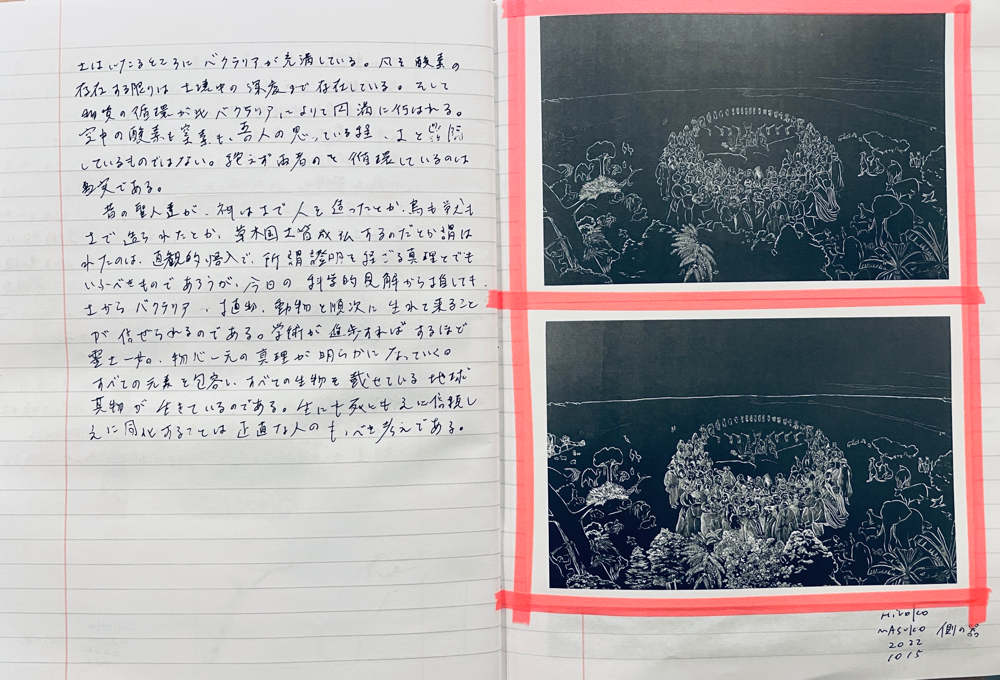 土はいたるところに バクテリアが充満している。凡そ酸素の
存在する限りは 土壌中の深度まで存在している。そして
物質の循環が此バクテリアによりて円満に行はれる。
空中の酸素も窒素も、吾人の思っている様、土と
しているものではない。絶えず両者の を循環しているのは
事実である。
昔の聖人達が、神は土で人を造ったとか、鳥も獣も
土で造られたとか、草木国土皆成仏するのだとか謂は
れたのは、直観的悟入で、所謂證明を 真理とでも
いふべきものであろうが、今日の 科学的見解から推しても、
土から バクテリア、植物、動物と順次に生れて来ること
が信ぜられるのである。学術が進歩すればするほど
霊土一如。物心一元の真理が明らかになっていく。
すべての元素を包容し、すべての生物を載せている地球
其物が 生きているのである。生にも死にも之に信頼し
之に同化することは 正直な人の もつべき考えである。
Hiroko
MASUKO 側の
2022
10 15